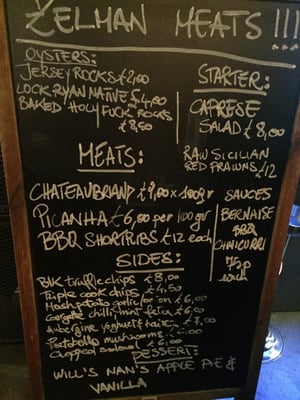 ZELMAN MEATS !!!
OYSTERS:
JERSEY ROCKS £2,00
LOCK RYAN NATIVE £4,00
BAKED HOLY FUCK ROCKS
£8,50
STARTER:
CAPRESE
SALAD £8,00
RAW SICILIAN
RED PRAWNS £12
MEATS:
CHATEAUBRIAND £9,00 x 100gr
PICANHA £6,00 per 100 gr
BBQ SHORTRIBS £12 each
SAUCES
BERNAISE
BBQ
CHIMICURRI
each
SIDES:
BIK truffle chips £8,00
Triple cook chips £4,50
Mash potato garlic/on £6,00
Courgete chilli mint feta £6,00
Aubergine yoghurt £7,00
Portobello mushrooms
Chopped salad £6,00
DESSERT:
WILL'S NAN'S APPLE PIE &
VANILLA